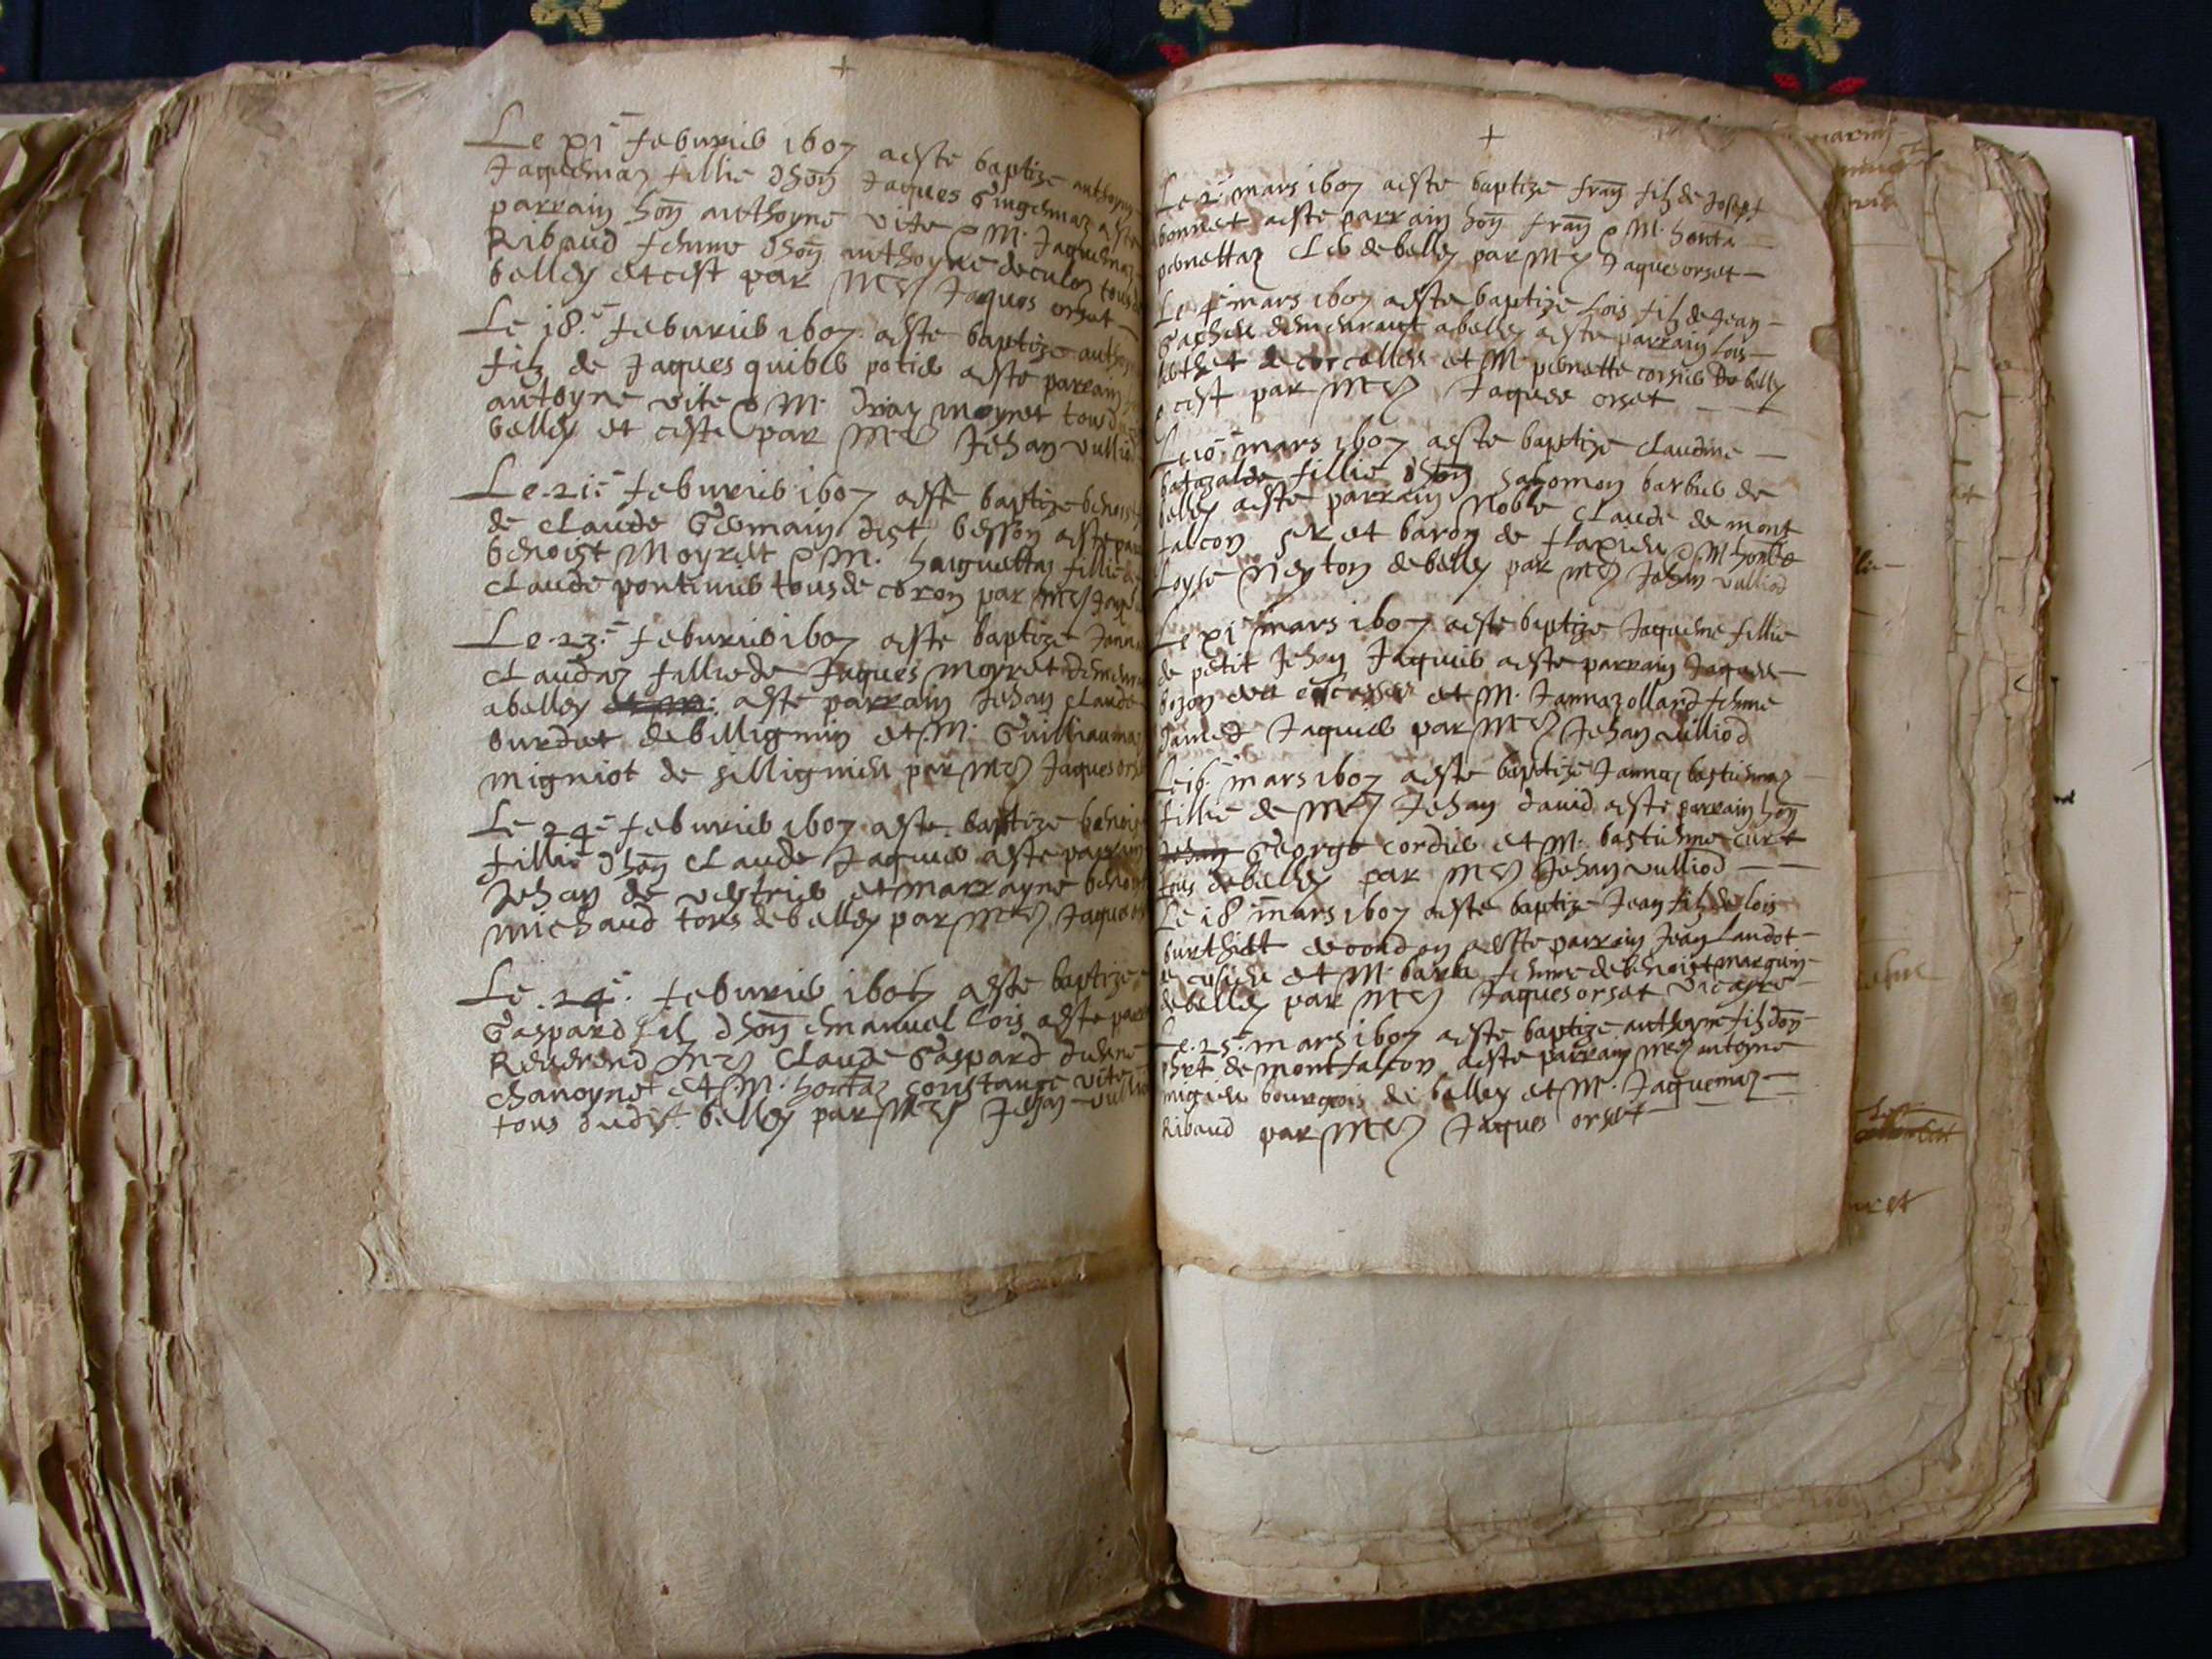 +
Le xi.e feburier 1607 aeste baptize anthoyne
Jaquemaz fillie dhon Jaques Gingemaz aeste
parrain hon anthoyne vite e M. Jaquemaz
Ribaud femme dhon anthoyne de culoz tous
belley et cest par Mre Jaques orset
Le 18.e feburier 1607 aeste baptize anthoyne
filz de Jaques quiber potier aeste parrain
antoyne vite e M. moynet tous
belley et ceste par Mre Jehan vulliod
Le 21.e feburier 1607 aeste baptize benoist
de Claude Germain dist besson aeste par
benoist Moyret e M. huguettaz fillie
Claude pontimier tous de coron par Mre Jaques
Le 23.e feburier 1607 aeste baptize Janna
Claudaz fillie de Jaques moyret demeur
abelley aeste parrain Jehan Claude
burdet de billignin et M. Guilliaumaz
migniot de sillignieu par Mre Jaques orset
Le 24.e feburier 1607 aeste baptize benoi
fillie dhon Claude Jaquier aeste parrain
Jehan de vestrier et marrayne benoi
michaud tous de belley par Mre Jaques
Le 24.e feburier 1607 aeste baptize
Gaspard filz dhon emanuel Lois aeste par
Reverend Mre Claude Gaspard
chanoyne et M. honta constance vite
tous dudist belley par Mre Jehan vulliod
+
Le 2.e mars 1607 aeste baptize fran filz de Joseph
bonnet aeste parrain hon fran e M. honta
pernettaz de belley par Mre Jaques orset
Le 4.e mars 1607 aeste baptize Lois filz de Jean
Gacheu demeurant abelley aeste parrain Lois
berthet de corcelles et M. pernette corsier de belley
e cest par Mre Jaques orset
Le 10.e mars 1607 aeste baptize Claudine
fillie dhon Salomon barbier de
belley aeste parrain Noble Claude de mont
falcon sr et baron de flaxieu e M. honble
Loyse Neyton de belley par Mre Jehan vulliod
Le xi.e mars 1607 aeste baptize Jaqueme fillie
de petit Jehan Jaquier aeste parrain Jaques
bozon et M. Jannaz ollard femme
Jaquier par Mre Jehan vulliod
Le 16.e mars 1607 aeste baptize Jannaz bastiemaz
fillie de Mre Jehan david aeste parrain hon
Jehan George cordier et M. bastienne curt
tous de belley par Mre Jehan vulliod
Le 18.e mars 1607 aeste baptize Jean filz de lois
aeste parrain Jean Landot
et M. barbe femme de benoist marguin
de belley par Mre Jaques orset vicayre
Le 25.e mars 1607 aeste baptize anthoyne filz don
phrt de montfalcon aeste parrain Mre antoyne
migieu bourgeois de belley et M. Jaquemaz
Ribaud par Mre Jaques orset